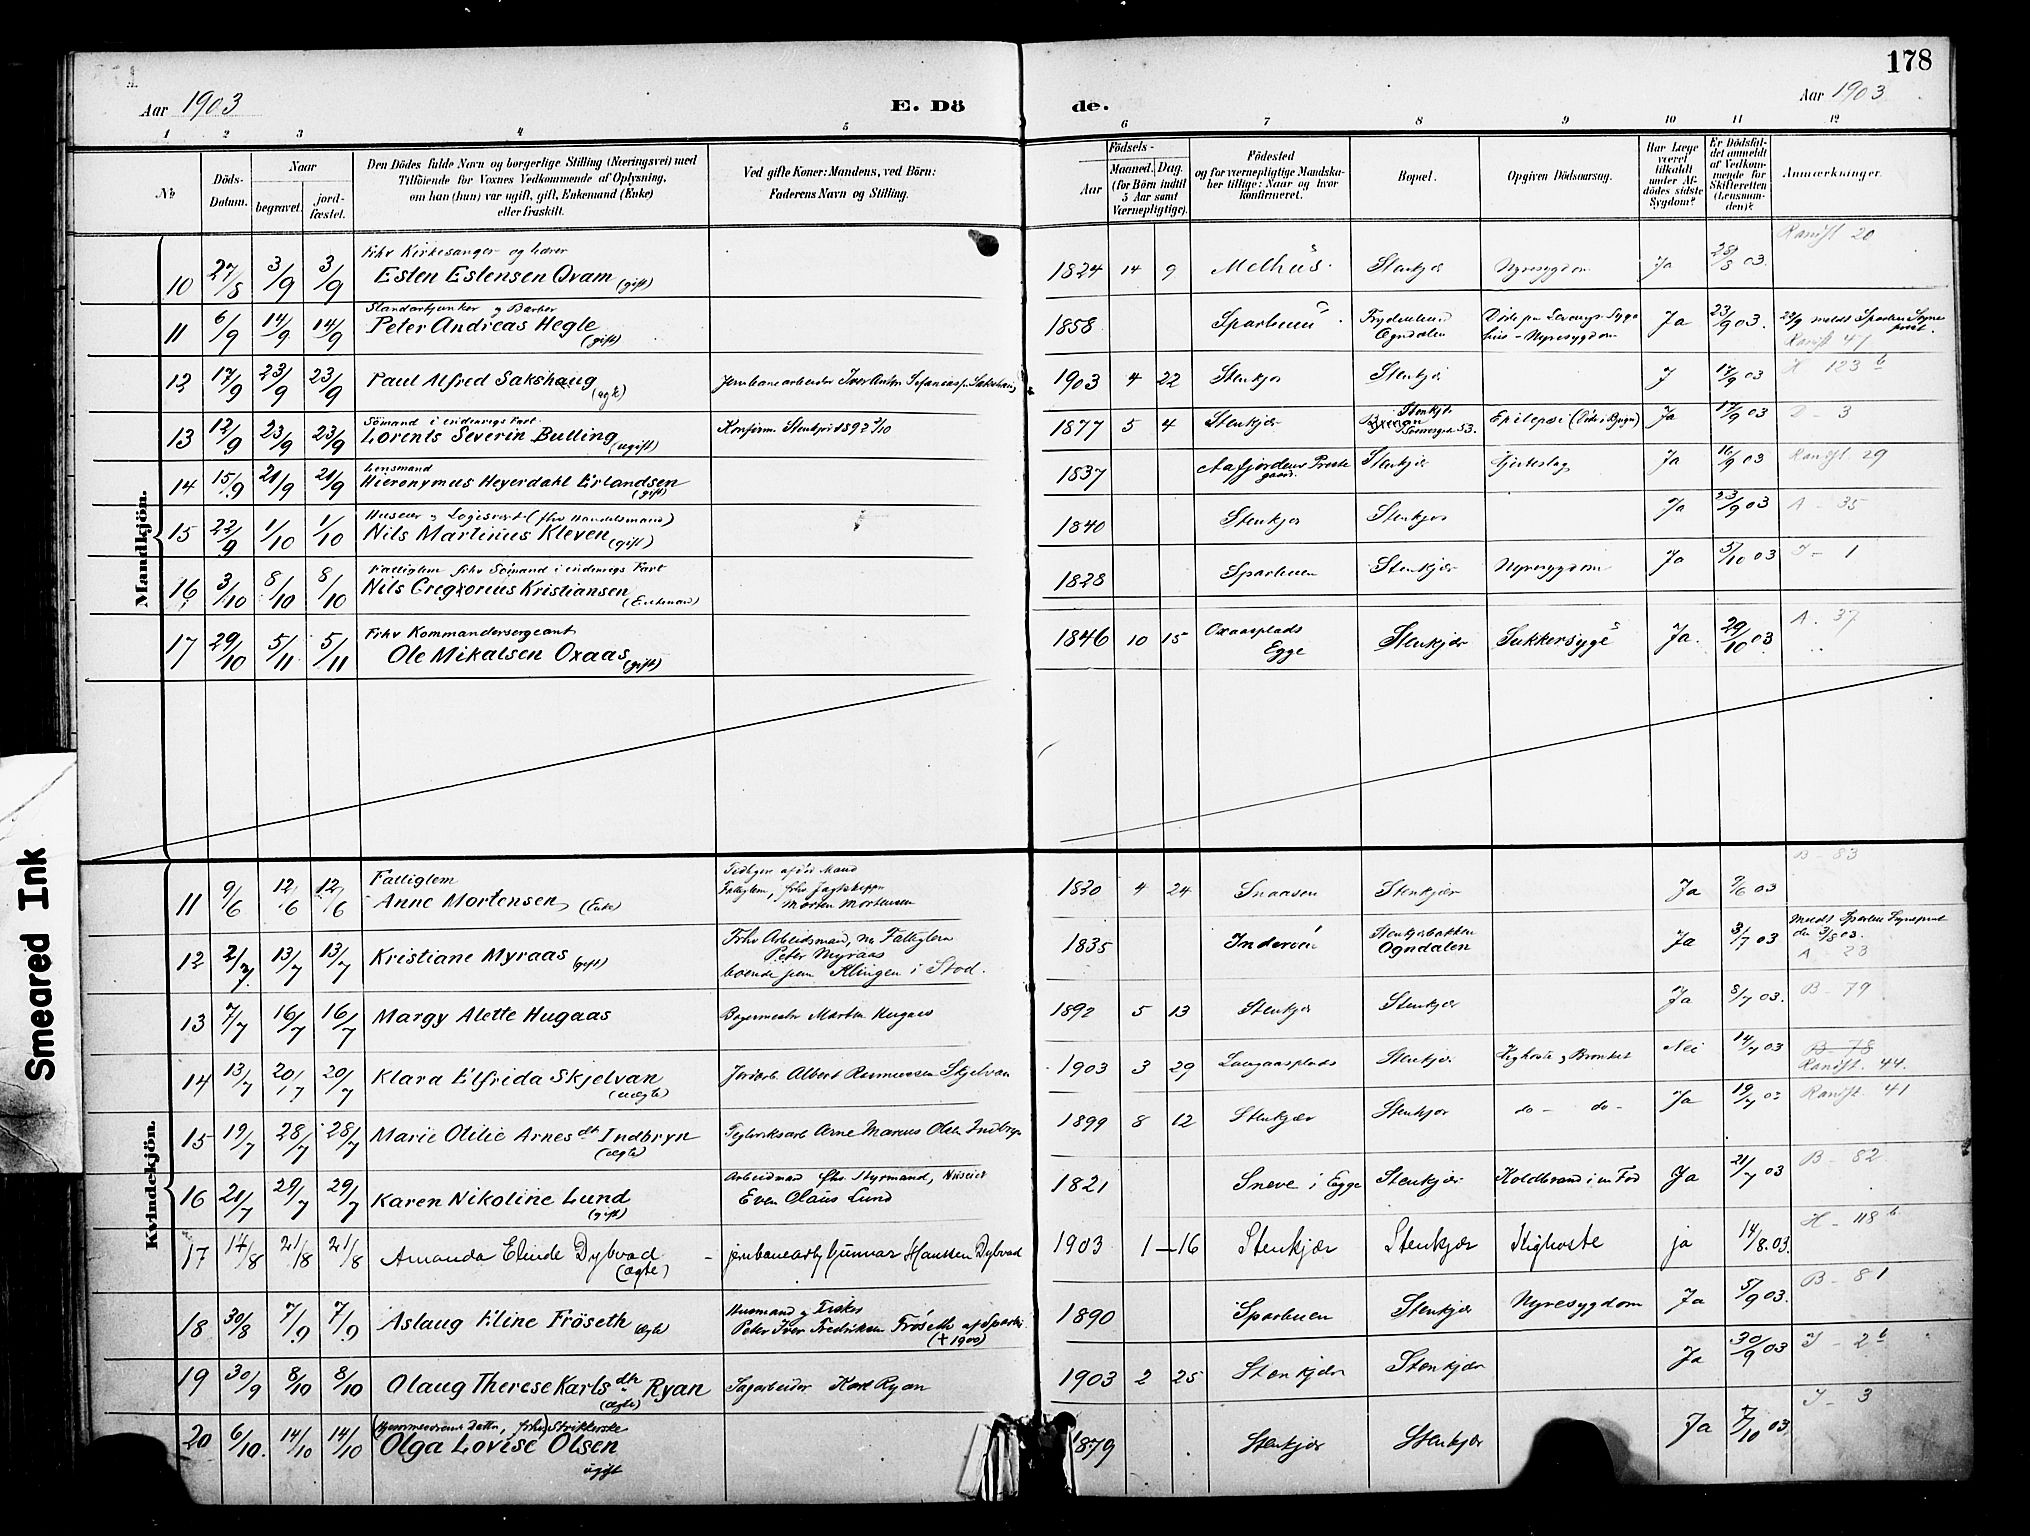 178
Aar 1903
E. Dö
de.
Aar 1903
1 2 3 4 5 6 7 8 9 10 11 12
No
Döds-
Datum.
Naar
begravet.
jord-
fæstet.
Den Dödes fulde Navn og borgerlige Stilling (Næringsvei) med
Tilföiende for Voxnes Vedkommende af Oplysning,
om han (hun) var ugift, gift, Enkemand (Enke)
eller fraskilt.
Ved gifte Koner: Mandens, ved Börn:
Faderens Navn og Stilling.
Födsels-
Aar
Maaned. Dag.
(for Börn indtil
5 Aar samt
Værnepligtige).
Födested
og for værnepligtige Mandska-
ber tillige: Naar og hvor
konfirmeret.
Bopæl.
Opgiven Dödsaarsag.
Har Læge
været
tilkaldt
under Af-
dödes sidste
Sygdom?
Er Dödsfal-
det anmeldt
af Vedkom-
mende for
Skifteretten
(Lensman-
den)?
Anmærkninger.
Mandkjön.
Fhv Kirkesanger og Lærer
10 27/8 3/9 3/9 Esten Estensen Qvam (gift) 1824 14 9 Melhus. Stenkjær Nyresygdom Ja 28/8 03. Ranist 20
Standartjunker og Barber
11 6/9 14/9 14/9 Peter Andreas Hegle (gift) 1858 Sparbuen Ogndalen Nyresygdom Ja 23/9 03. 23/9 meldt Sparbu Sogne
prest.
Ranist 47
12 17/9 23/9 23/9 Paul Alfred Sakshaug (ægte) Jernbanearbeider Iver Anton 1903 4 22 Stenkjær Stenkjær J 17/9 03 H 123 b
Sömand i indenrigs Fart
13 12/9 23/9 23/9 Lorents Severin Bulling (ugift) Konfirm. Stenkjær 1892 2/10 1877 5 4 Stenkjær Stenkjær 53. Epilepsi Ja 17/9 03 D - 3
Lensmand
14 15/9 21/9 21/9 Hieronymus Heyerdahl Erlandsen (gift) 1837 Aafjordens Preste
gaard. Stenkjær Hjerteslag Ja 16/9 03 Ranist 29
Huseier og Logisvært (fhv Handelsmand)
15 22/9 1/10 1/10 Nils Martinus Kleven (gift) 1840 Stenkjær Stenkjær Ja 23/9 03 A - 35
Fattiglem fhv Sömand i indenrigs Fart
16 3/10 8/10 8/10 Nils Gregorius Kristiansen (Enkemand) 1828 Sparbuen Stenkjær Nyresygdom Ja 5/10 03 I - 1
Fhv Kommandersergeant
17 29/10 5/11 5/11 Ole Mikalsen Oxaas (gift) 1846 10 15 Oxaasplads
Egge Stenkjær Sukkersyge Ja. 29/10 03 A. 37
Kvindekjön.
Fattiglem
11 9/6 12/6 12/6 Anne Mortensen (Enke) Fattiglem, fhv Jagtskipper
Morten Mortensen 1820 4 24 Snaasen Stenkjær Ja 9/6 03 B - 83
12 2/7 13/7 13/7 Kristiane Myraas (gift) Fhv Arbeidsmand, nu Fattiglem
Peter Myraas
boende paa Klingen i Stod. 1835 Inderöen Stenkjærbakken
Ogndalen Ja 3/7 03 meldt Sparbu Sogneprest
den 3/8 03.
A - 23
13 7/7 16/7 16/7 Margy Alette Hugaas Bagermester Martin Hugaas 1892 5 13 Stenkjær Stenkjær Ja 8/7 03. B - 79
14 13/7 20/7 20/7 Klara Elfrida Skjelvan (uægte) Jordarb. Albert Rasmussen Skjelvan 1903 3 29 Stenkjær Kighoste og Bronkit Nei 14/7 03 B - 78
Ranist. 44.
15 19/7 28/7 28/7 Marie Otilie Arnes dtr Indbryn (ægte) Teglverksarb Arne Marius Olsen Indbryn 1899 8 12 Stenkjær Stenkjær do - do - Ja 19/7 03 Ranist. 41
16 21/7 29/7 29/7 Karen Nikoline Lund (gift) Arbeidmand fhv Styrmand, Huseier
Even Olaus Lund 1821 Sneve i Egge Stenkjær Koldbrand i en Fod Ja 21/7 03 B - 82
17 14/8 21/8 21/8 Amanda Elinde Dybvad (ægte) - jernbanearb Gunvar Hansen Dybvad 1903 1 - 16 Stenkjær Stenkjær Kighoste ja 14/8.03. H - 118 b
18 30/8 7/9 7/9 Aslaug Eline Fröseth ægte Husmand og Fisker
Peter Iver Fredriksen Fröseth af Sparbu.
(✝1900) 1890 Sparbuen Stenkjær Nyresygdom Ja 5/9 03. B - 81
19 30/9 8/10 8/10 Olaug Therese Karls dtr Ryan (ægte) Sagarbeider Karl Ryan 1903 2 25 Stenkjær Stenkjær Ja 30/9 03 I - 2 b
Hjemmeværende Datter, fhv Strikkerske
20 6/10. 14/10 14/10 Olga Lovise Olsen ugift 1879 Stenkjær Stenkjær Ja 7/10 03 I - 3
Smeared Ink